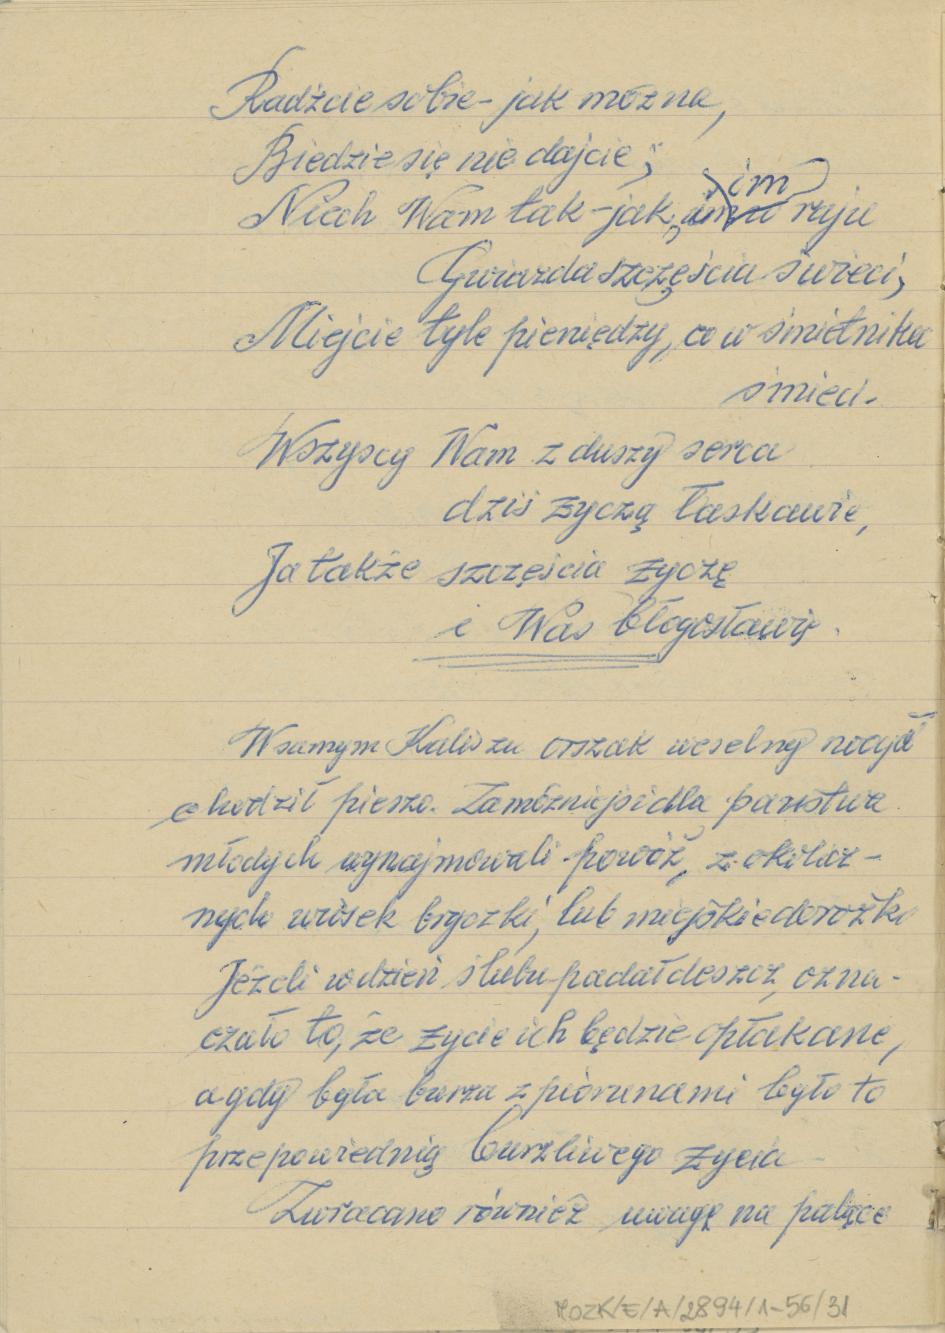 Radźcie sobie - jak można,
Biedzie się nie dajcie;
im
Niech Wam tak - jak w raju
Gwiazda szczęścia świeci,
Miejcie tyle pieniędzy, co w śmietniku
śmieci.
Wszyscy Wam z duszy serca
dziś życzą łaskawie,
Ja także szczęścia życzę
i Was błogosławię.
W samym Kaliszu orszak weselny
chodził pieszo. Zamożniejsi dla państwa
młodych wynajmowali powóz, z okolicz-
nych wiosek bryczki, lub miejskie dorożki
Jeżeli w dzień ślubu padał deszcz, ozna-
czało to, że życie ich będzie opłakane,
a gdy była burza z piorunami było to
przepowiednią burzliwego życia
Zwracano również uwagę na palące
MOZK/E/A/2894/1-56/31